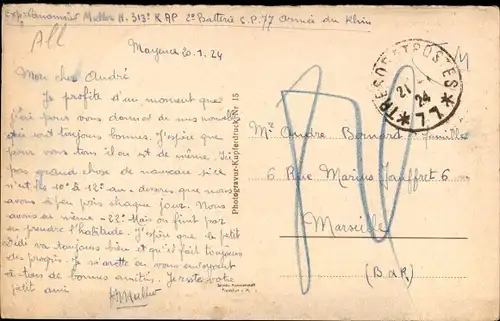 Exp: Canonnier Muller H. 313e R AP 2e Batterie S.P. 77 Armée du Rhin
All
Mayence 20.1.24
Mon cher André
Je profite d'un moment que
j'ai pour vous donner de mes nouvelles
qui sont toujours bonnes. J'espère que
pour vous tous il en est de même. Ici
pas grand chose de nouveau si ce
n'est les 10° à 12° au-dessous que nous
avons à peu près chaque jour. Nous
avons eu même -22° Mais on finit par
en prendre l'habitude. J'espère que le petit
Dédé va toujours bien et qu'il fait toujours
des progrès. Je m'arrête en vous envoyant
à tous de bonnes amitiés. Je reste votre
petit ami
HMuller
Photogravur-Kupferdruck Nr. 15
Frankfurt a. M.
TRESOR ET POSTES
21 - 1
24
* 77 *
Mr André Bernard et famille
6 Rue Marius Jauffret 6
Marseille
(B d R)